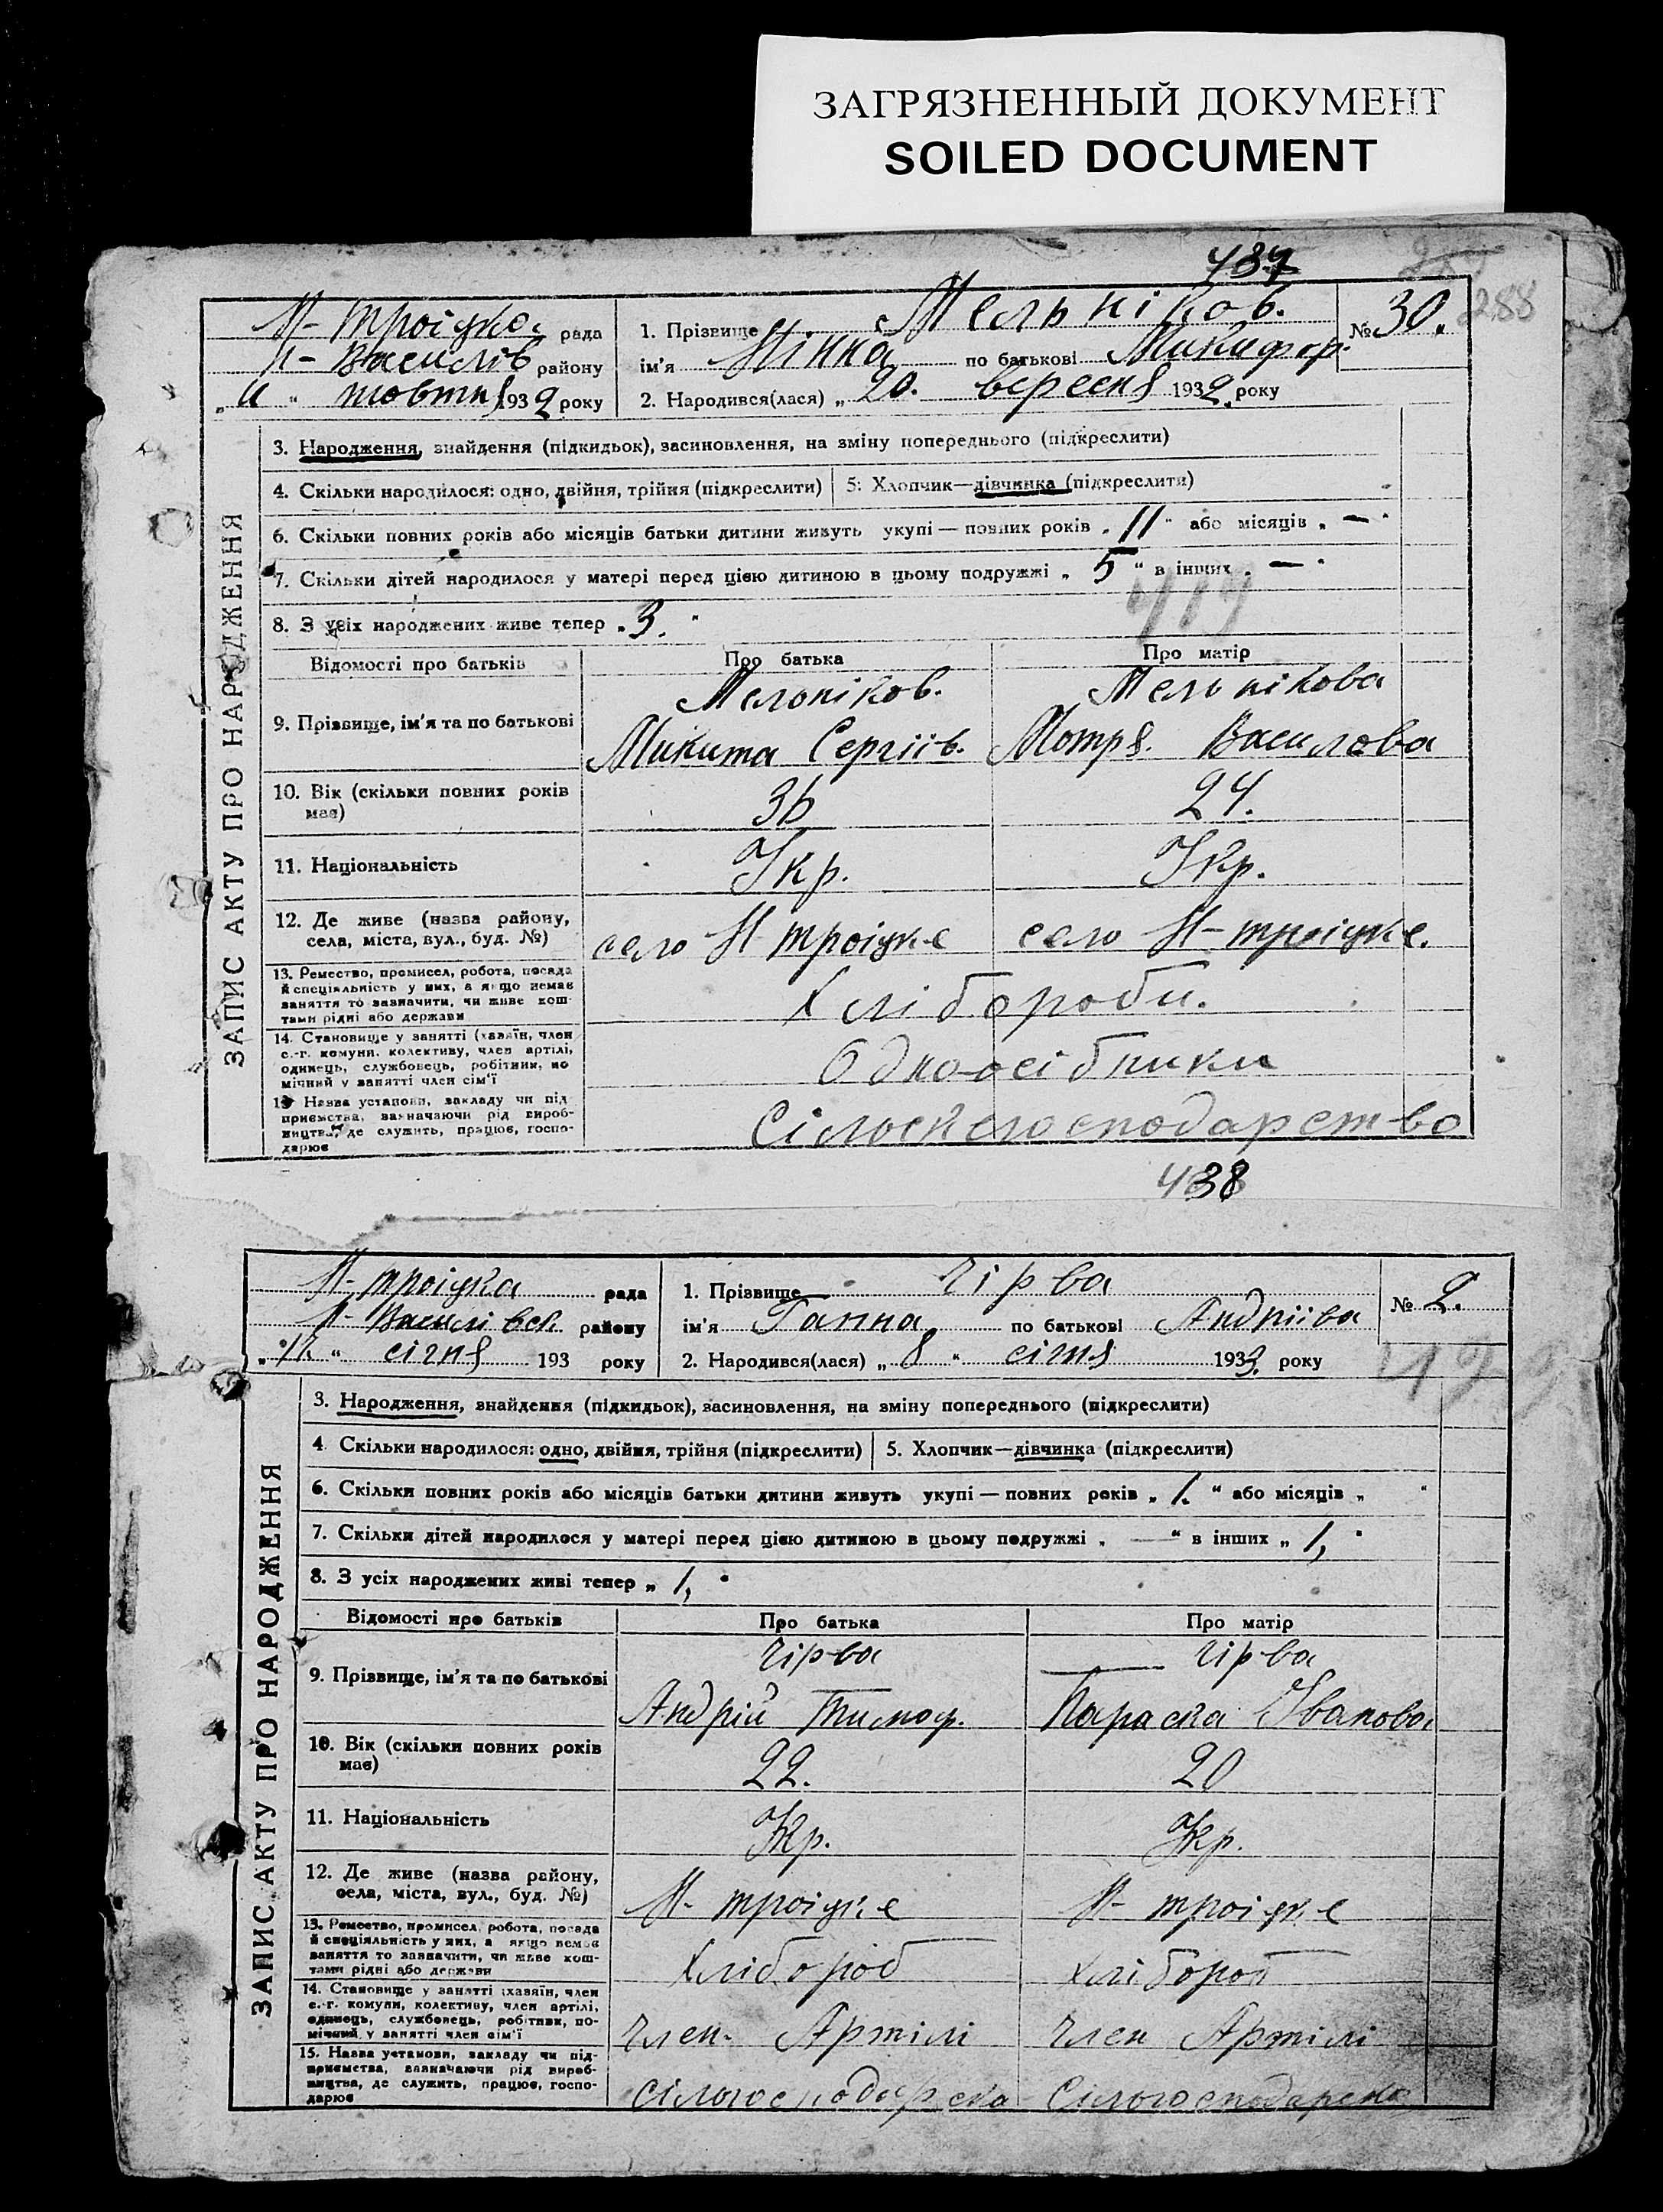 ЗАГРЯЗНЕННЫЙ ДОКУМЕНТ
SOILED DOCUMENT
437
288
Н-Троіцка рада
Н-Василів району
жовтня 1932 року
1. Прізвище Мельніков.
ім'я Нінна по батькові Микифор.
2. Народився(лася) „ 20. вересня 1932 року
№ 30.
ЗАПИС АКТУ ПРО НАРОДЖЕННЯ
3. Народження, знайдення (підкидьок), засиновлення, на зміну попереднього (підкреслити)
4. Скільки народилося: одно, двійня, трійня (підкреслити) 5: Хлопчик—дівчинка (підкреслити)
6. Скільки повних років або місяців батьки дитини живуть укупі — повних років „ 11 " або місяців „ — "
7. Скільки дітей народилося у матері перед цією дитиною в цьому подружжі „ 5 " в інших „ — "
419
8. З усіх народжених живе тепер „ 3. "
Відомості про батьків Про батька Про матір
9. Прізвище, ім'я та по батькові
Мельніков. Мельнікова
Микита Сергіїв. Мотря. Василова
10. Вік (скільки повних років має) 36 24.
11. Національність Укр. Укр.
12. Де живе (назва району, села, міста, вул., буд. №) село Н-троіцке село Н-троіцке.
13. Ремество, промисел, робота, посада
й спеціяльність у них, а якщо немає
заняття то зазначити, чи живе кош-
тами рідні або держави
Хлібороби.
14. Становище у занятті (хазяїн, член
с.-г. комуни, колективу, член артілі,
одинець, службовець, робітник, по
мічний у занятті член сім'ї
Одноосібники
15 Назва установи, закладу чи під
приємства, зазначаючи рід вироб-
ництва, де служить, працює, госпо-
дарює
Сільскегосподарство
438
Н-троіцка рада
Н-Василівск району
„ " січня 193 року
1. Прізвище Чірва
ім'я Ганна по батькові Андріїва
2. Народився(лася) „ 8 " січня 1933 року
№ 2.
ЗАПИС АКТУ ПРО НАРОДЖЕННЯ
3. Народження, знайдення (підкидьок), засиновлення, на зміну попереднього (підкреслити)
4 Скільки народилося: одно, двійня, трійня (підкреслити) 5. Хлопчик—дівчинка (підкреслити)
6. Скільки повних років або місяців батьки дитини живуть укупі — повних років „ 1. " або місяців „ "
7. Скільки дітей народилося у матері перед цією дитиною в цьому подружжі „ — " в інших „ 1, "
8. З усіх народжених живі тепер „ 1, "
Відомості про батьків Про батька Про матір
9. Прізвище, ім'я та по батькові
Чірва Чірва
Андрій Тимоф. Параска Іванова
10. Вік (скільки повних років має) 22. 20
11. Національність Укр. Укр.
12. Де живе (назва району, села, міста, вул., буд. №) Н-троіцке Н-троіцке
13. Ремество, промисел, робота, посада
й спеціяльність у них, а якщо немає
заняття то зазначити, чи живе кош-
тами рідні або держави
Хлібороб Хлібороб
14. Становище у занятті (хазяїн, член
с.-г. комуни, колективу, член артілі,
одинець, службовець, робітник, по-
мічний у занятті член сім'ї
Член Артілі Член Артілі
15. Назва установи, закладу чи під-
приємства, зазначаючи рід вироб-
ництва, де служить, працює, госпо-
дарює
Сільгосподарска Сільгосподарска